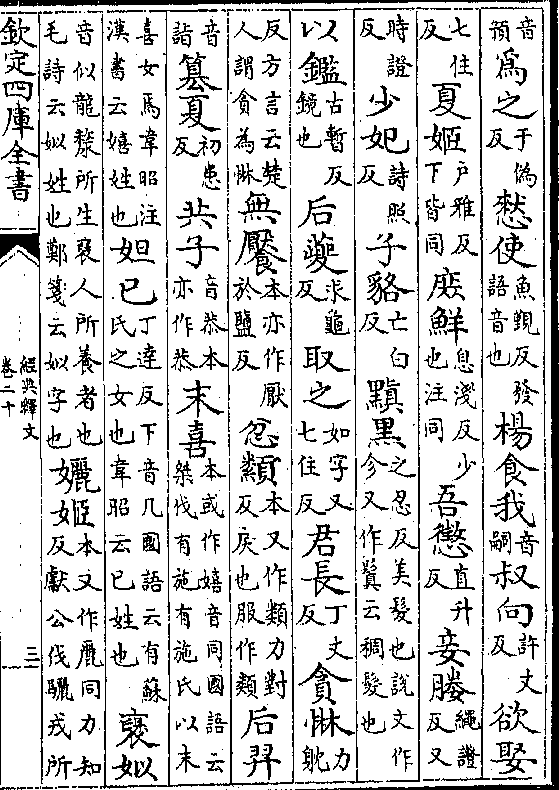 音預爲之于僞反憖使魚覲反發語音也楊食我音嗣叔向許丈反欲娶
七住反夏姬户雅反下皆同庶鮮息淺反少也注同吾懲直升反妾媵繩證反又
時證反少妃詩照反子貉亡白反黰黑之忍反美髮也說文作㐱又作鬒云稠髮也
以鑑古暫反鏡也后夔求龜反取之如字又七住反君長丁丈反貪惏力躭
反方言云楚人謂貪為惏無饜本亦作厭於鹽反忿纇本又作類力對反戾也服作類后羿
音詣篡夏初患反共子音恭本亦作恭末喜本或作嬉音同國語云桀伐有施有施氏以末
喜女焉韋昭注漢書云嬉姓也妲已丁達反下音几國語云有蘇氏之女也韋昭云已姓也褒姒
音似龍漦所生褒人所養者也毛詩云姒姓也鄭箋云姒字也孋姬本又作麗同力知反獻公伐驪戎所
欽定四庫全書
經典釋文
卷二十
三